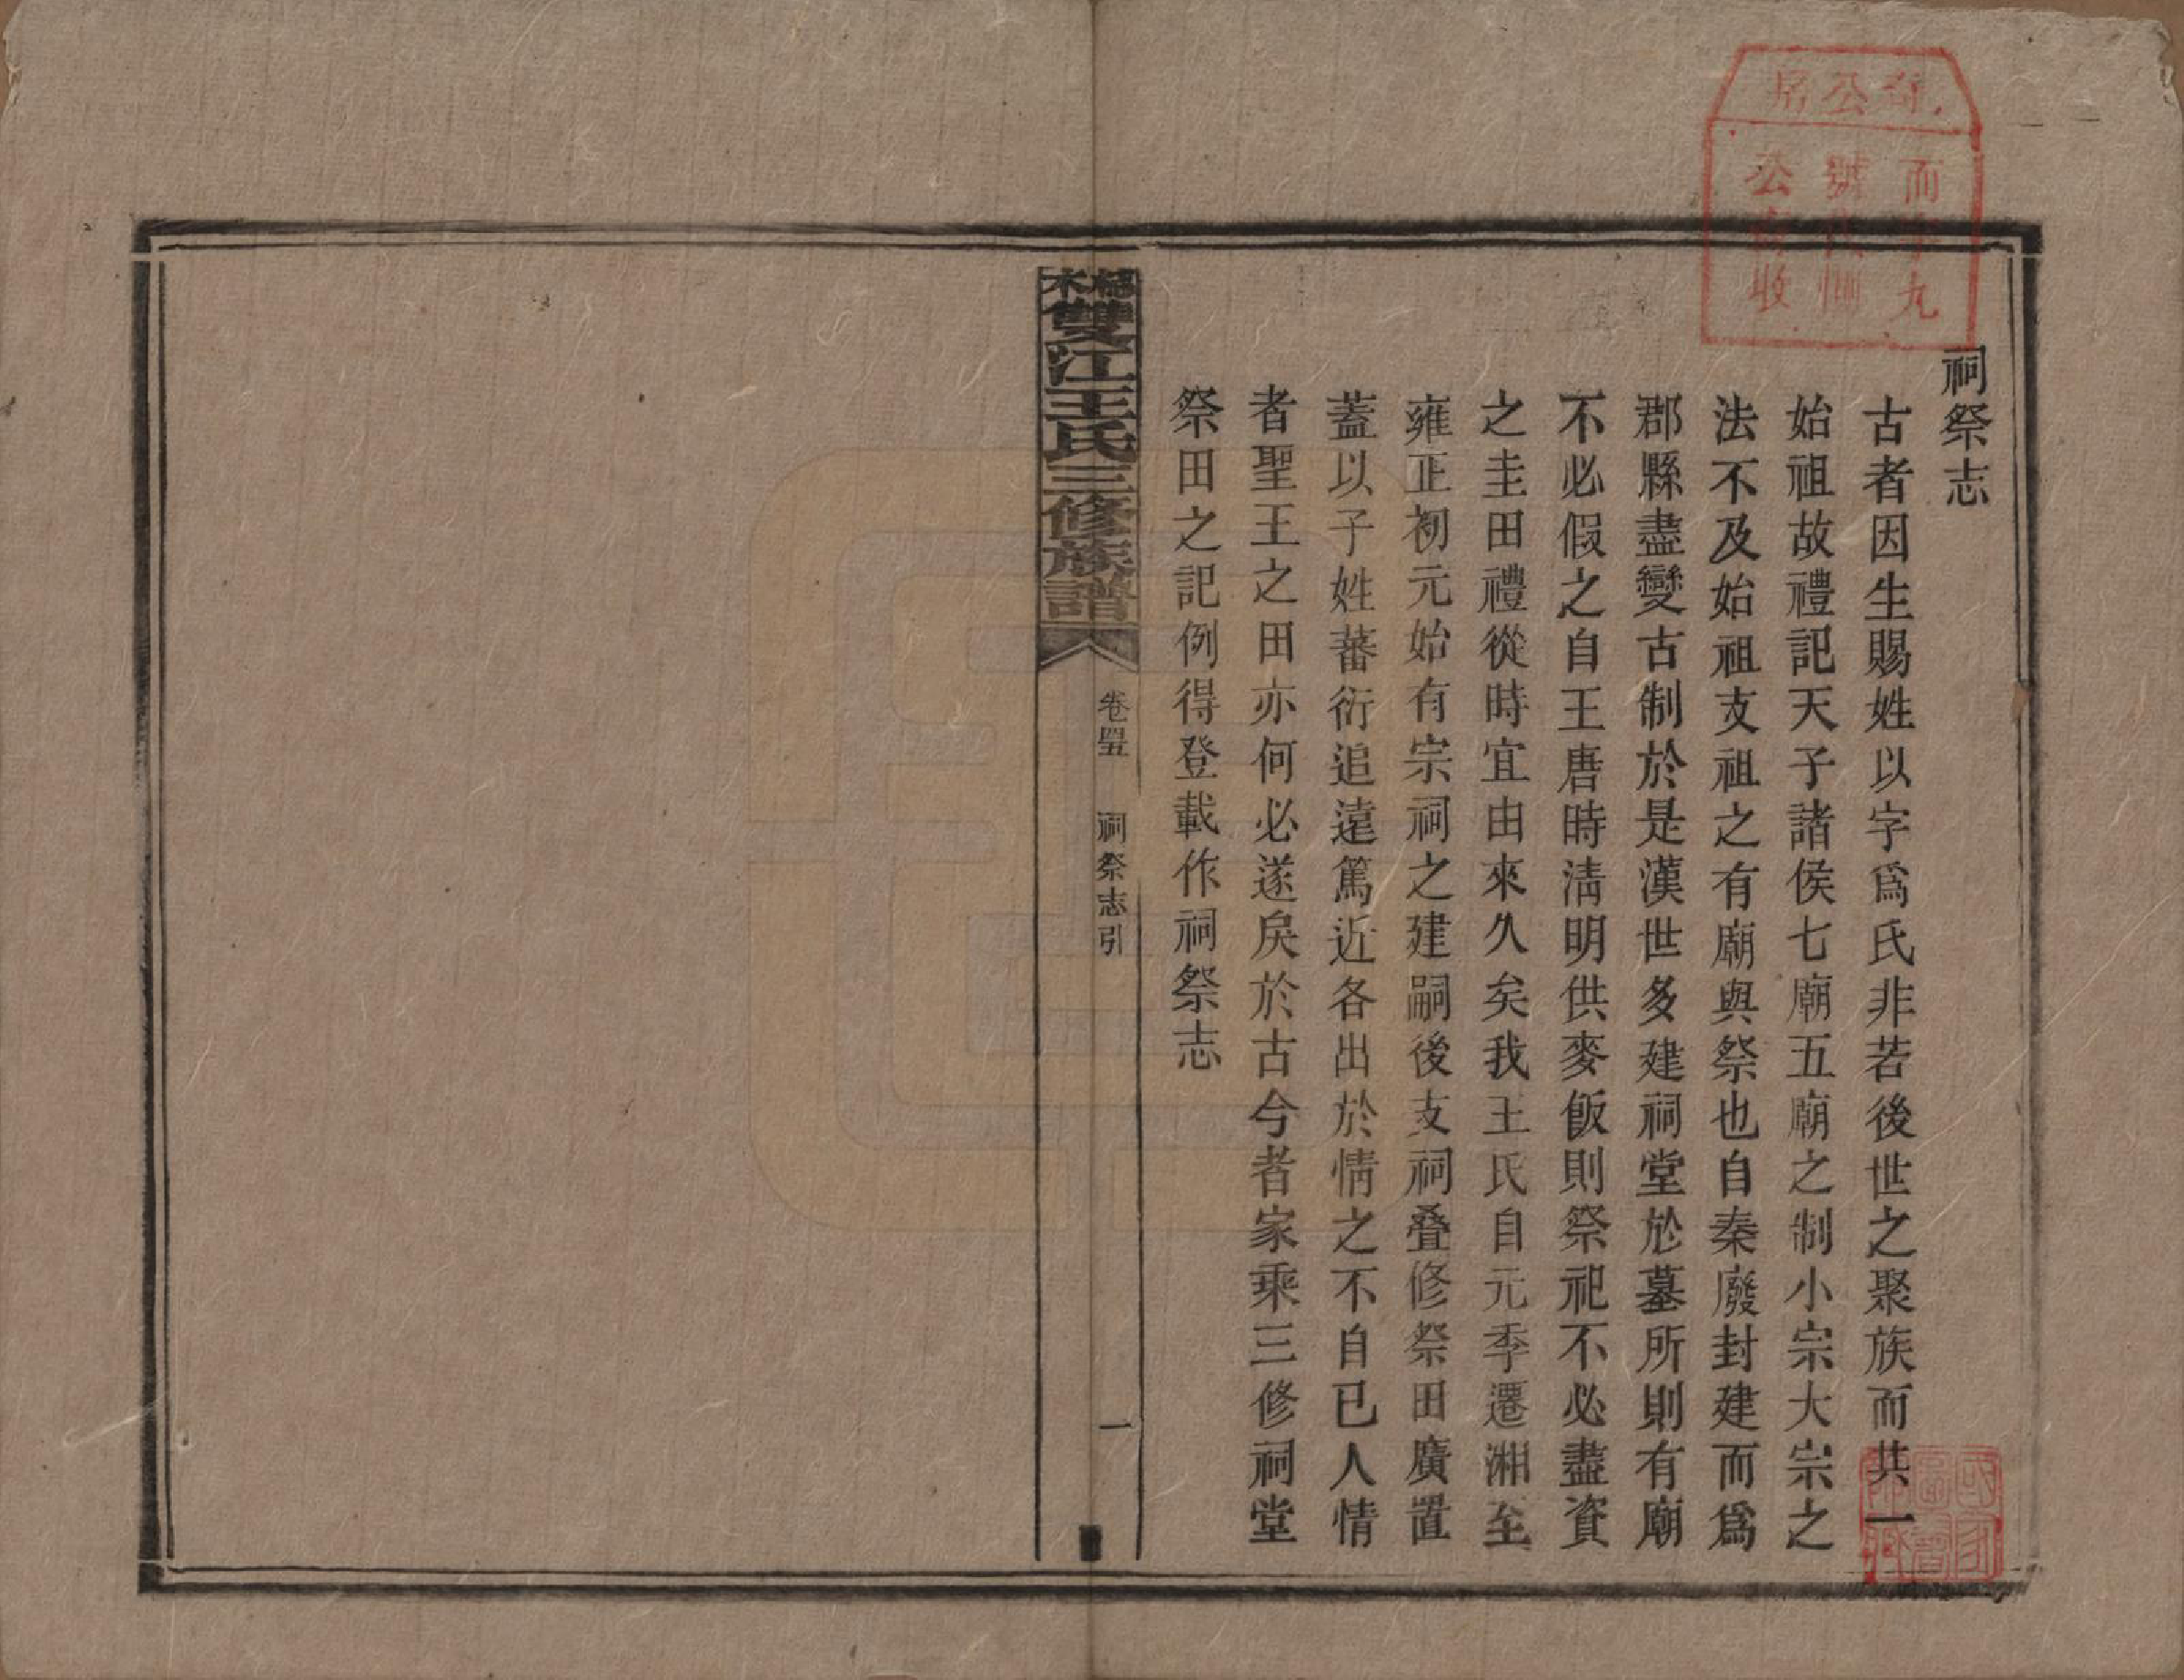 祠祭志
古者因生賜姓以字爲氏非若後世之聚族而共一
始祖故禮記天子諸侯七廟五廟之制小宗大宗之
法不及始祖支祖之有廟與祭也自秦廢封建而爲
郡縣盡變古制於是漢世多建祠堂於墓所則有廟
不必假之自王唐時淸明供麥飯則祭祀不必盡資
之圭田禮從時宜由來久矣我王氏自元季遷湘至
雍正初元始有宗祠之建嗣後支祠叠修祭田廣置
蓋以子姓蕃衍追遠篤近各出於情之不自已人情
者聖王之田亦何必遂戾於古今者家乘三修祠堂
祭田之記例得登載作祠祭志
雙江王氏三修族譜
卷四五
祠祭志引
一
奇公房
而字九
號
公收